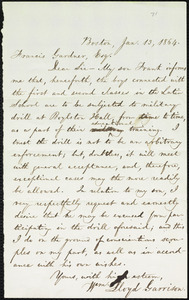 Boston, Jan. 13, 1864.
Francis Gardner, Esq:
Dear Sir — My son Frank informs
me that, henceforth, the boys connected with
the first and second classes in the Latin
School are to be subjected to military
drill at Boylston Hall, from time to time,
as a part of their training. I
trust the drill is not to be an arbitrary
enforcement; but, doubtless, it will meet
with general acceptance, and, therefore,
exceptional cases may the more readily be
allowed. In relation to my son, I
very respectfully request and earnestly
desire that he may be excused from par-
ticipating in the drill aforesaid, and this
I do on the ground of conscientious scru-
ples on my part, as well as in accord-
ance with his own wishes.
Yours, with high
Wm. Lloyd Garrison.